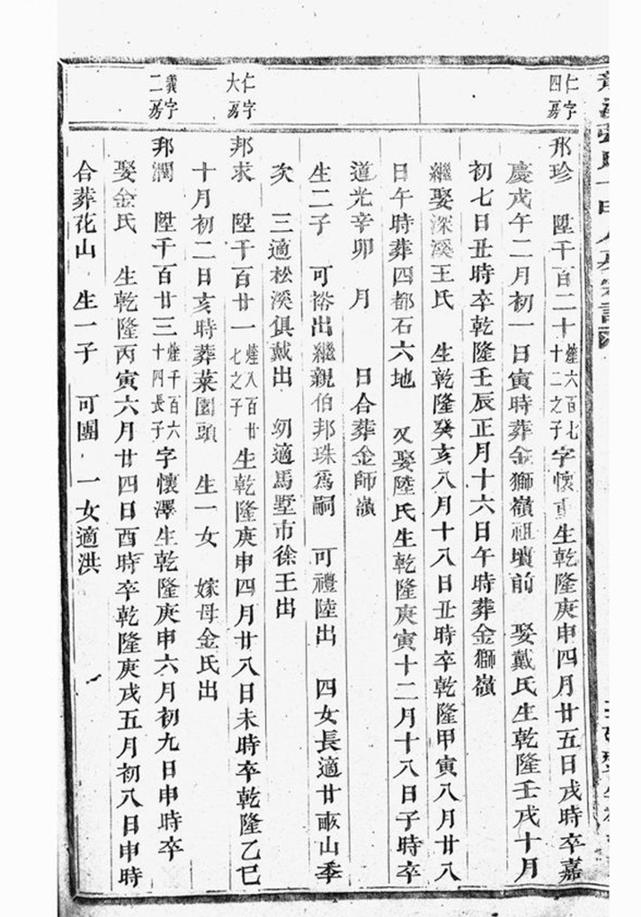 仁字四房
邦珍 陞千百二十 煃六百七十二之子 字懷重生乾隆庚申四月廿五日戌時卒嘉
慶戊午二月初一日寅時葬金獅嶺祖墳前 娶戴氏生乾隆壬戌十月
初七日丑時卒乾隆壬辰正月十六日午時葬金獅嶺
繼娶深溪王氏 生乾隆癸亥八月十八日丑時卒乾隆甲寅八月廿八
日午時葬四都石六地 又娶陸氏生乾隆庚寅十二月十八日子時卒
道光辛卯 月 日合葬金師嶺
生二子 可裕出繼親伯邦珠爲嗣 可禮陸出 四女長適廿畝山季
次 三適松溪俱戴出 幼適馬墅市徐王出
仁字大房
邦求 陞千百廿一 煃八百廿七之子 生乾隆庚申四月廿八日未時卒乾隆乙巳
十月初二日亥時葬菜園頭 生一女 嫁母金氏出
義字二房
邦潤 陞千百廿三 煃千百六十四長子 字懷澤生乾隆庚申六月初九日申時卒
娶金氏 生乾隆丙寅六月廿四日酉時卒乾隆庚戌五月初八日申時
合葬花山 生一子 可團 一女適洪